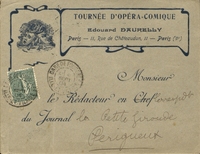 TOURNÉE D'OPÉRA-COMIQUE
Edouard DAURELLY
Paris — 11, Rue de Châteaudun, 11 — Paris (9e)
Monsieur
le Rédacteur en Chef
du Journal la Petite Gironde
Périgueux